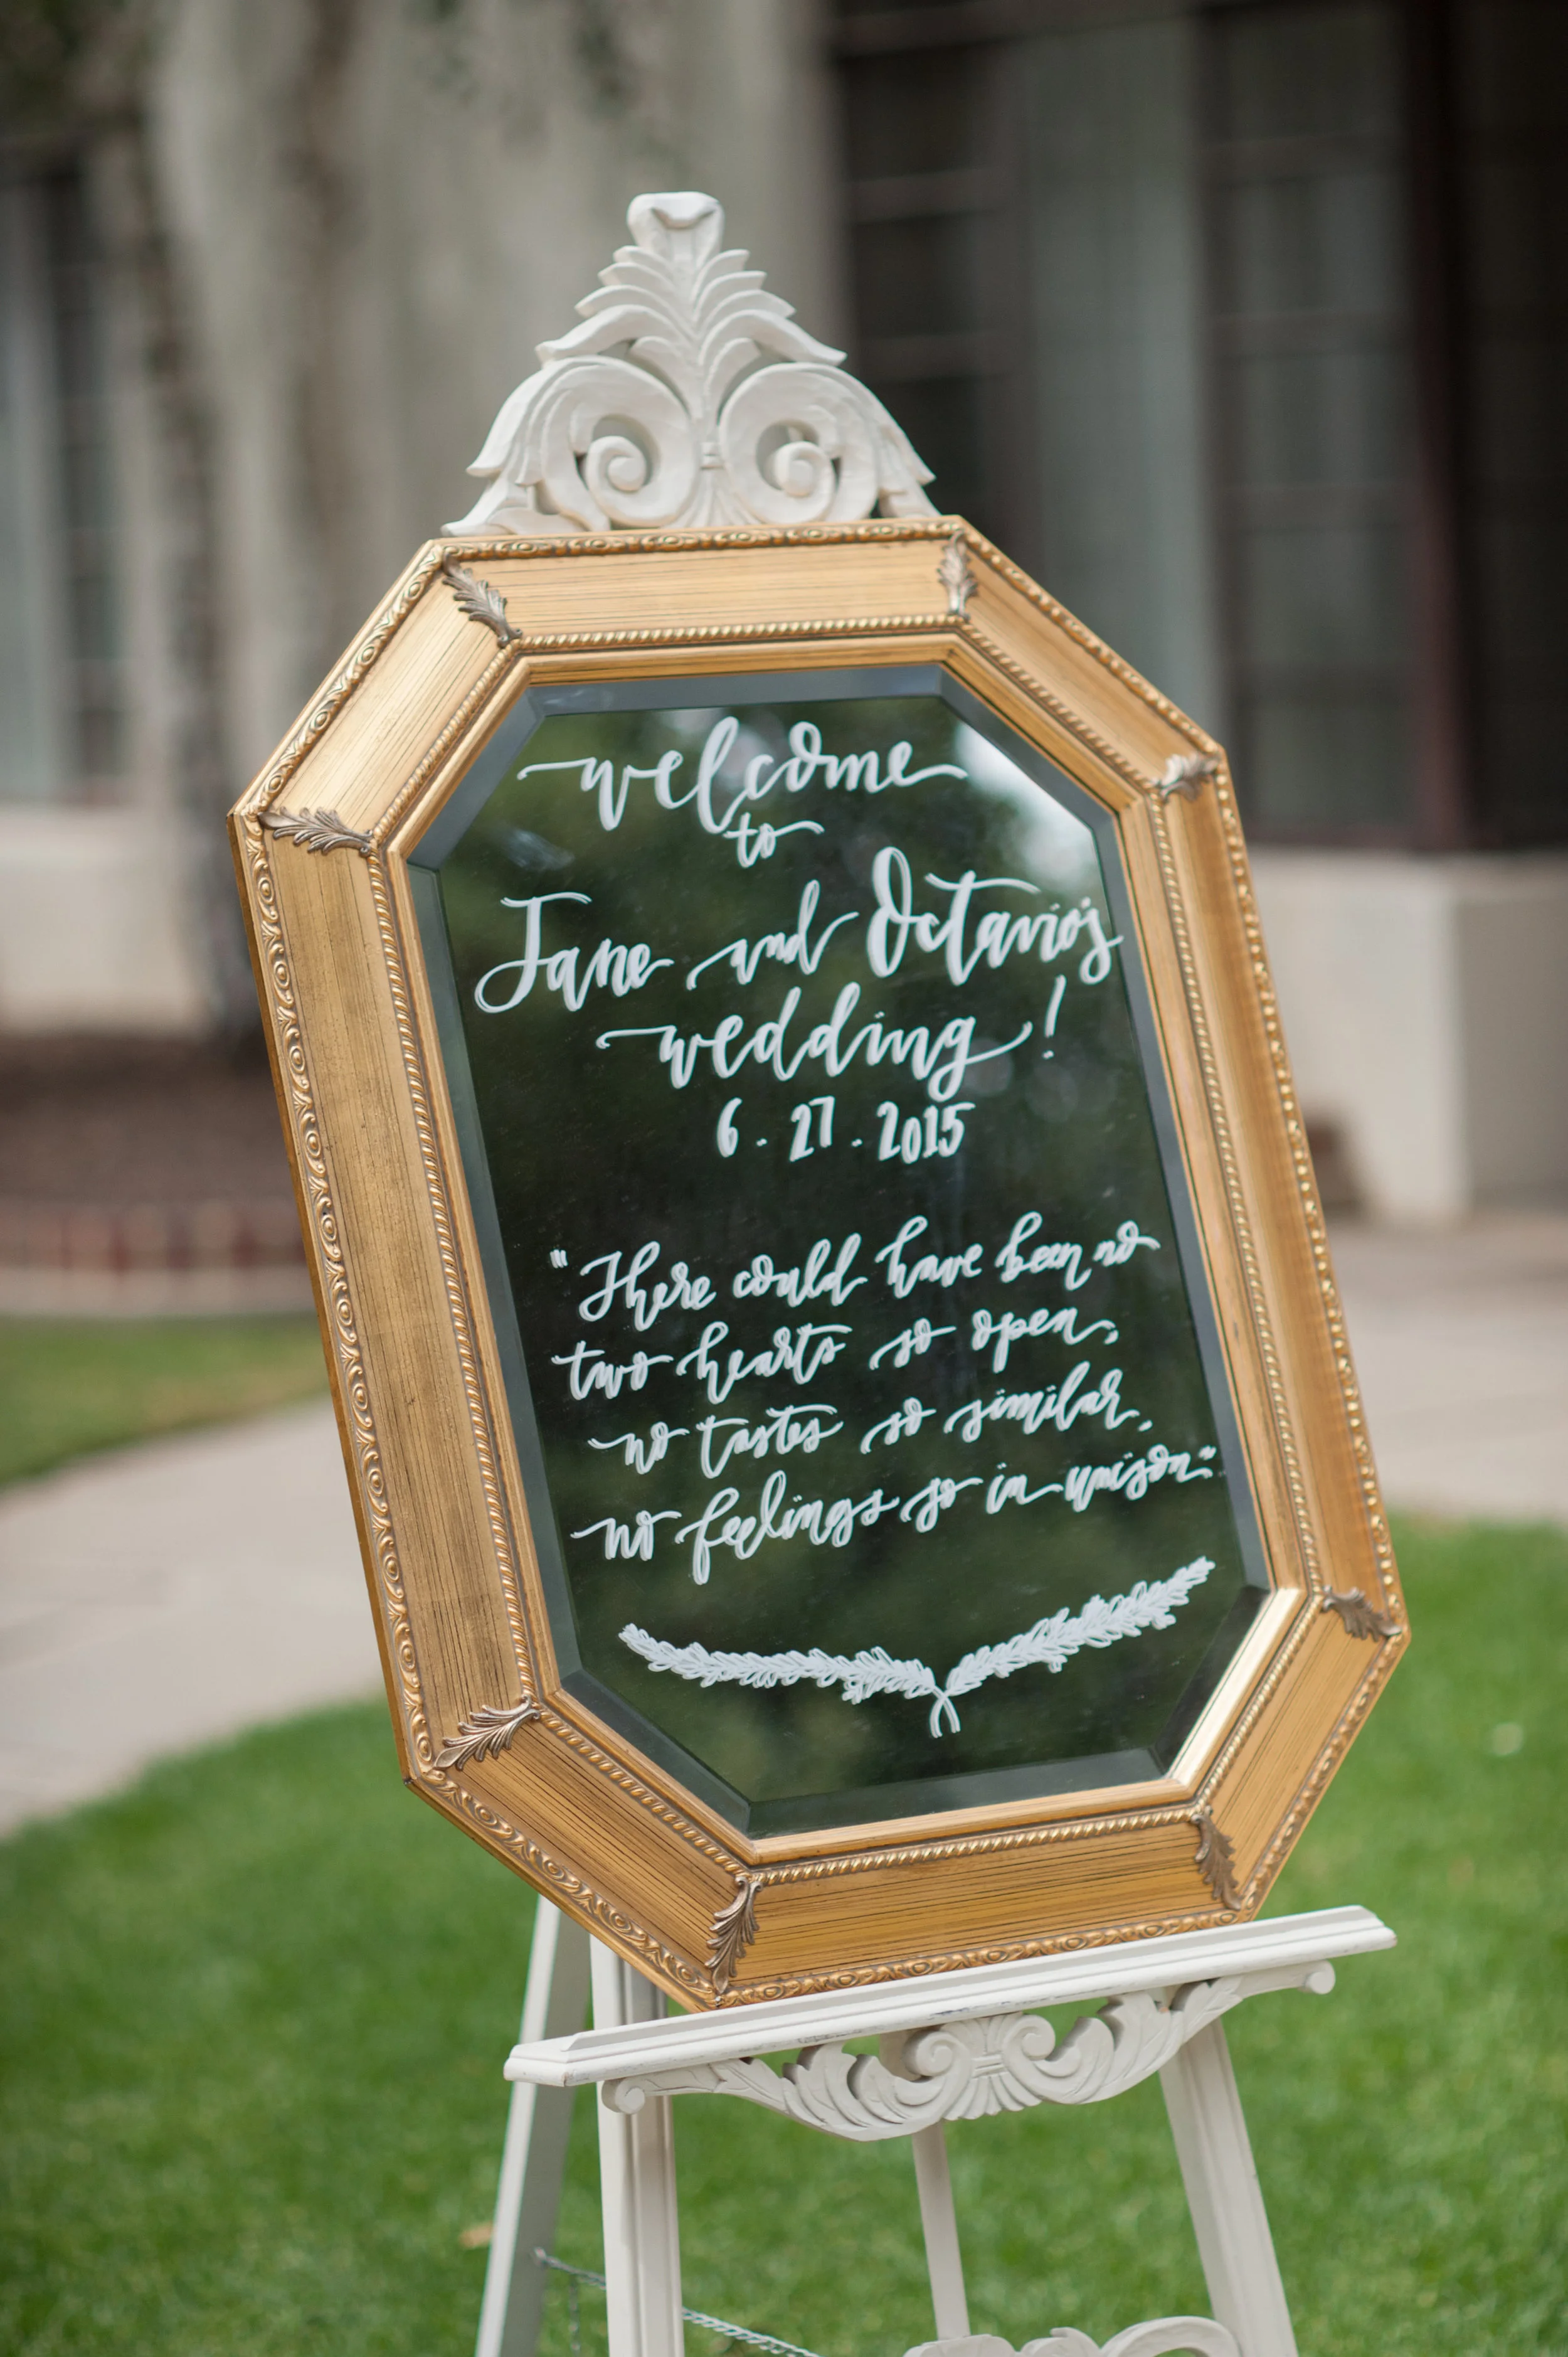 welcome
to
Jane and Octavio's
wedding!
6.27.2015
"There could have been no
two hearts so open,
no tastes so similar,
no feelings so in unison."